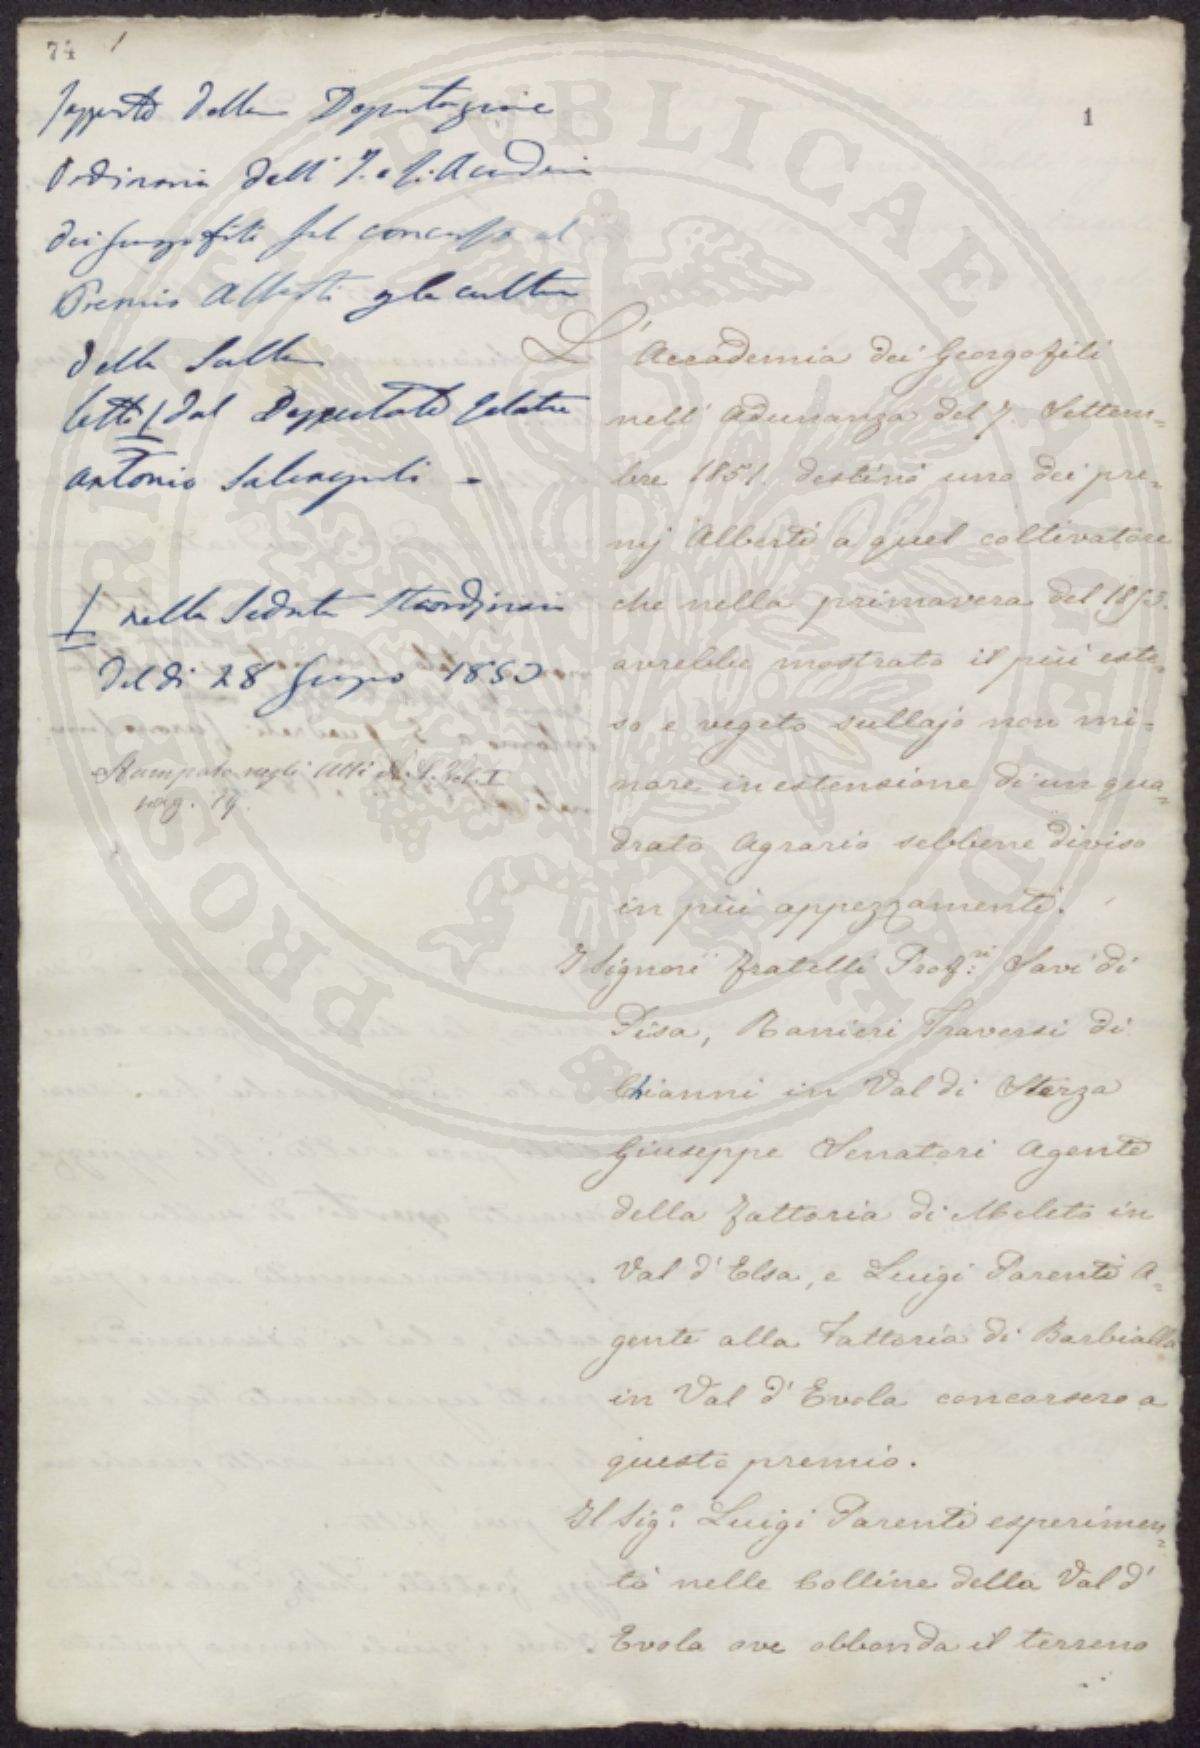 74
1
1
Rapporto della Deputazione
Ordinaria dell' I. e R. Accademia
dei Georgofili sul concorso al
Premio Alberti p la cultura
della Sulla
letto dal Deputato Relatore
Antonio Salvagnoli =
nella Seduta Straordinaria
del di 28 Giugno 1853
Stampato negli Atti N. S. Vol. I
pag. 19.
L' Accademia dei Georgofili
nell' Adunanza del 7. Settem=
bre 1851. destinò uno dei pre=
mj Alberti a quel coltivatore
che nella primavera del 1853.
avrebbe mostrato il più este=
so e vegeto sullajo non mi=
nore in estensione di un qua=
drato Agrario sebbene diviso
in più appezzamenti.
I Signori Fratelli Prof:ri Savi di
Pisa, Ranieri Traversi di
Chianni in Val di Sterza
Giuseppe Senatori Agente
della Fattoria di Meleto in
Val d' Elsa, e Luigi Parenti A=
gente alla Fattoria di Barbialla
in Val d' Evola concorsero a
questo premio.
Il Sig:e Luigi Parenti esperimen=
tò nelle Colline della Val d'
Evola ove abbonda il terreno
PROSPERITATI PUBLICAE AUGENDAE